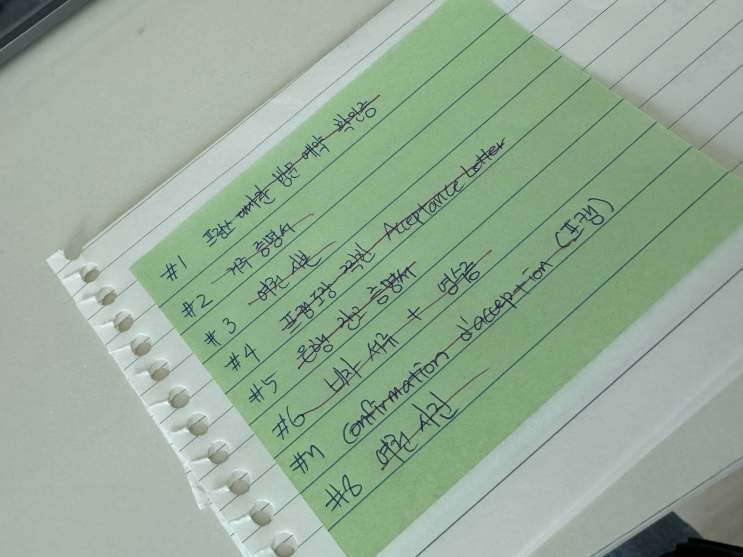 #1 프랑스 대사관 방문 예약 확인증
#2 거주 증명서
#3 여권 사본
#4 프랑 Acceptance Letter
#5 은행 잔고 증명서
#6 비자 서류 + 영수증
#7 Confirmation d'acception (프랑)
#8 여권 사진